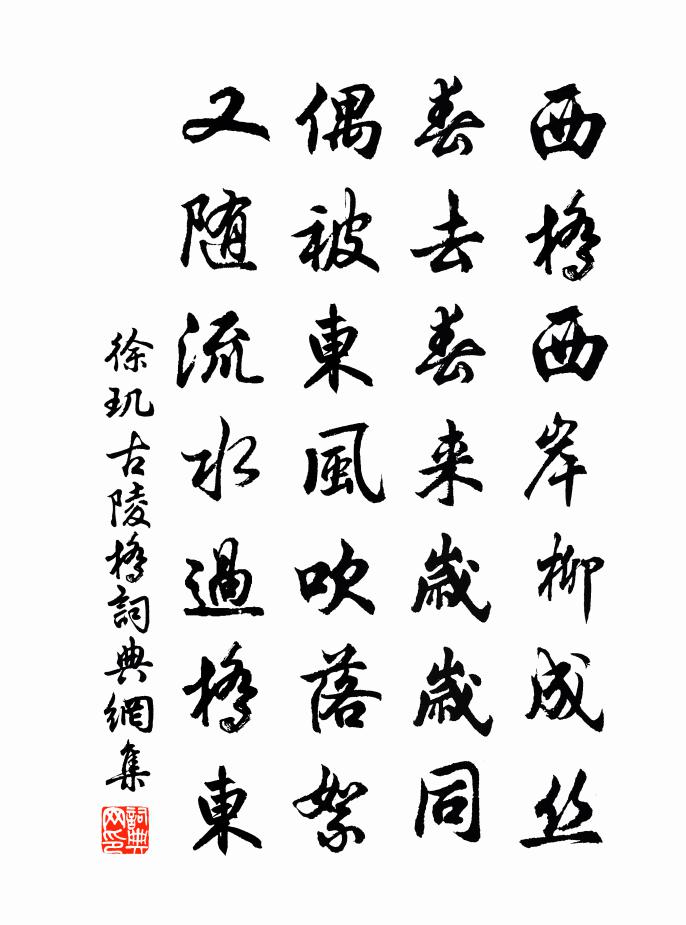 西橋西岸柳成丝
春去春来歲歲同
偶被東風吹落絮
又随流水過橋東
徐玑古陵橋詞典網集
詞典
网印